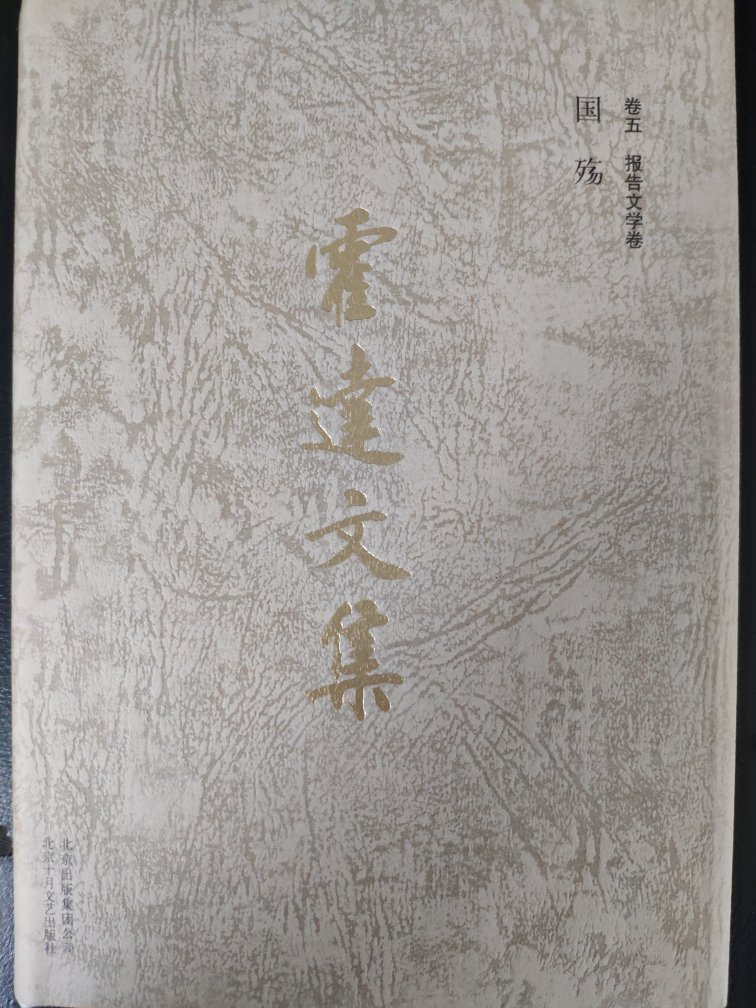 卷五 报告文学卷
国殇
霍達文集
北京出版集团公司
北京十月文艺出版社